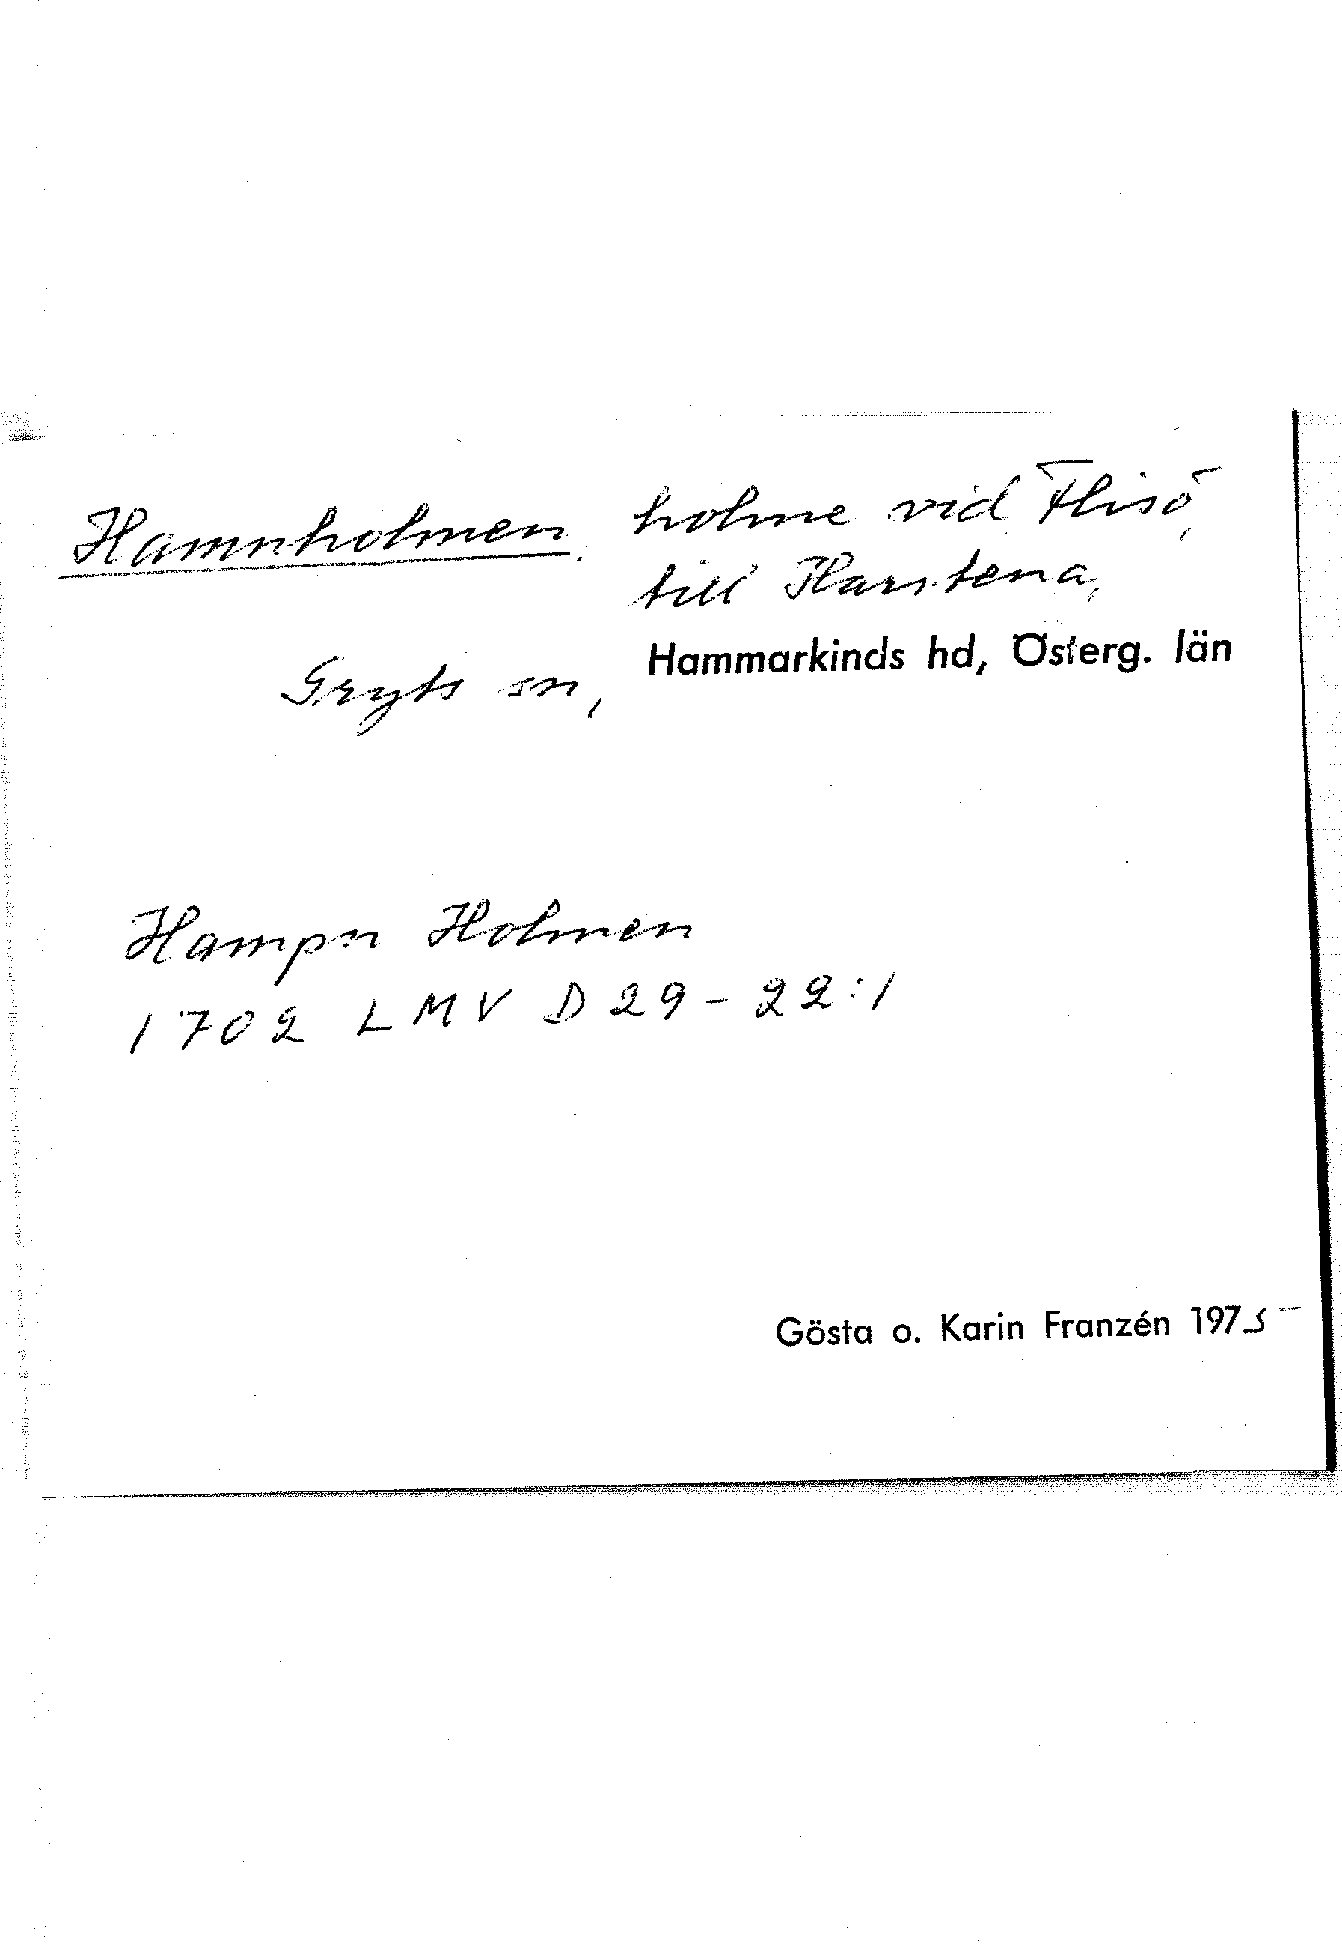 Hamnholmen, holme vid Flisö,
till Harstena,
Gryts sn, Hammarkinds hd, Österg. län
Hampn Holmen
1702 LMV D29-22:1
Gösta o. Karin Franzén 1975